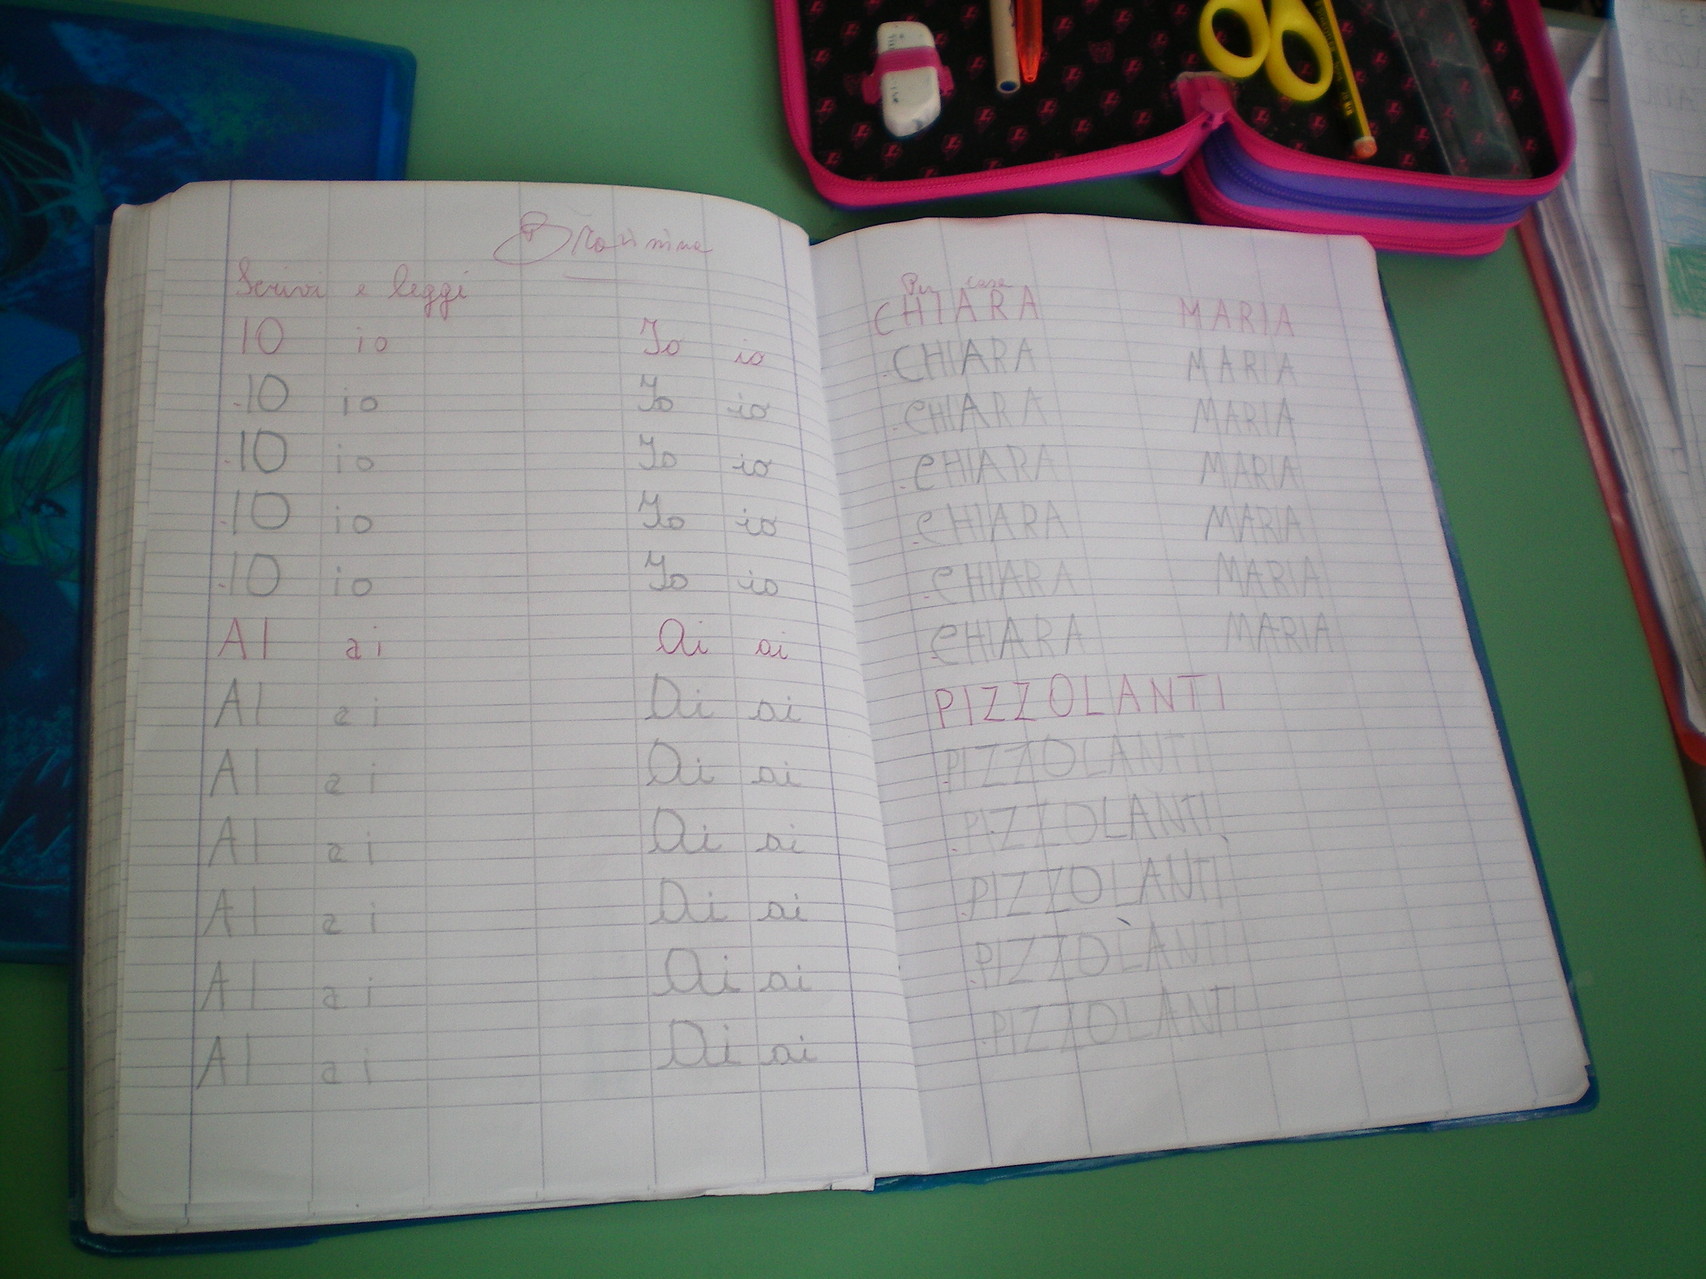 Bravissima
Scrivi e leggi
IO io Io io
IO io Io io
IO io Io io
IO io Io io
IO io Io io
IO io Io io
AI ai Ai ai
AI ai Ai ai
AI ai Ai ai
AI ai Ai ai
AI ai Ai ai
AI ai Ai ai
AI ai Ai ai
Per casa
CHIARA MARIA
CHIARA MARIA
CHIARA MARIA
CHIARA MARIA
CHIARA MARIA
CHIARA MARIA
CHIARA MARIA
PIZZOLANTI
PIZZOLANTI
PIZZOLANTI
PIZZOLANTI
PIZZOLANTI
PIZZOLANTI